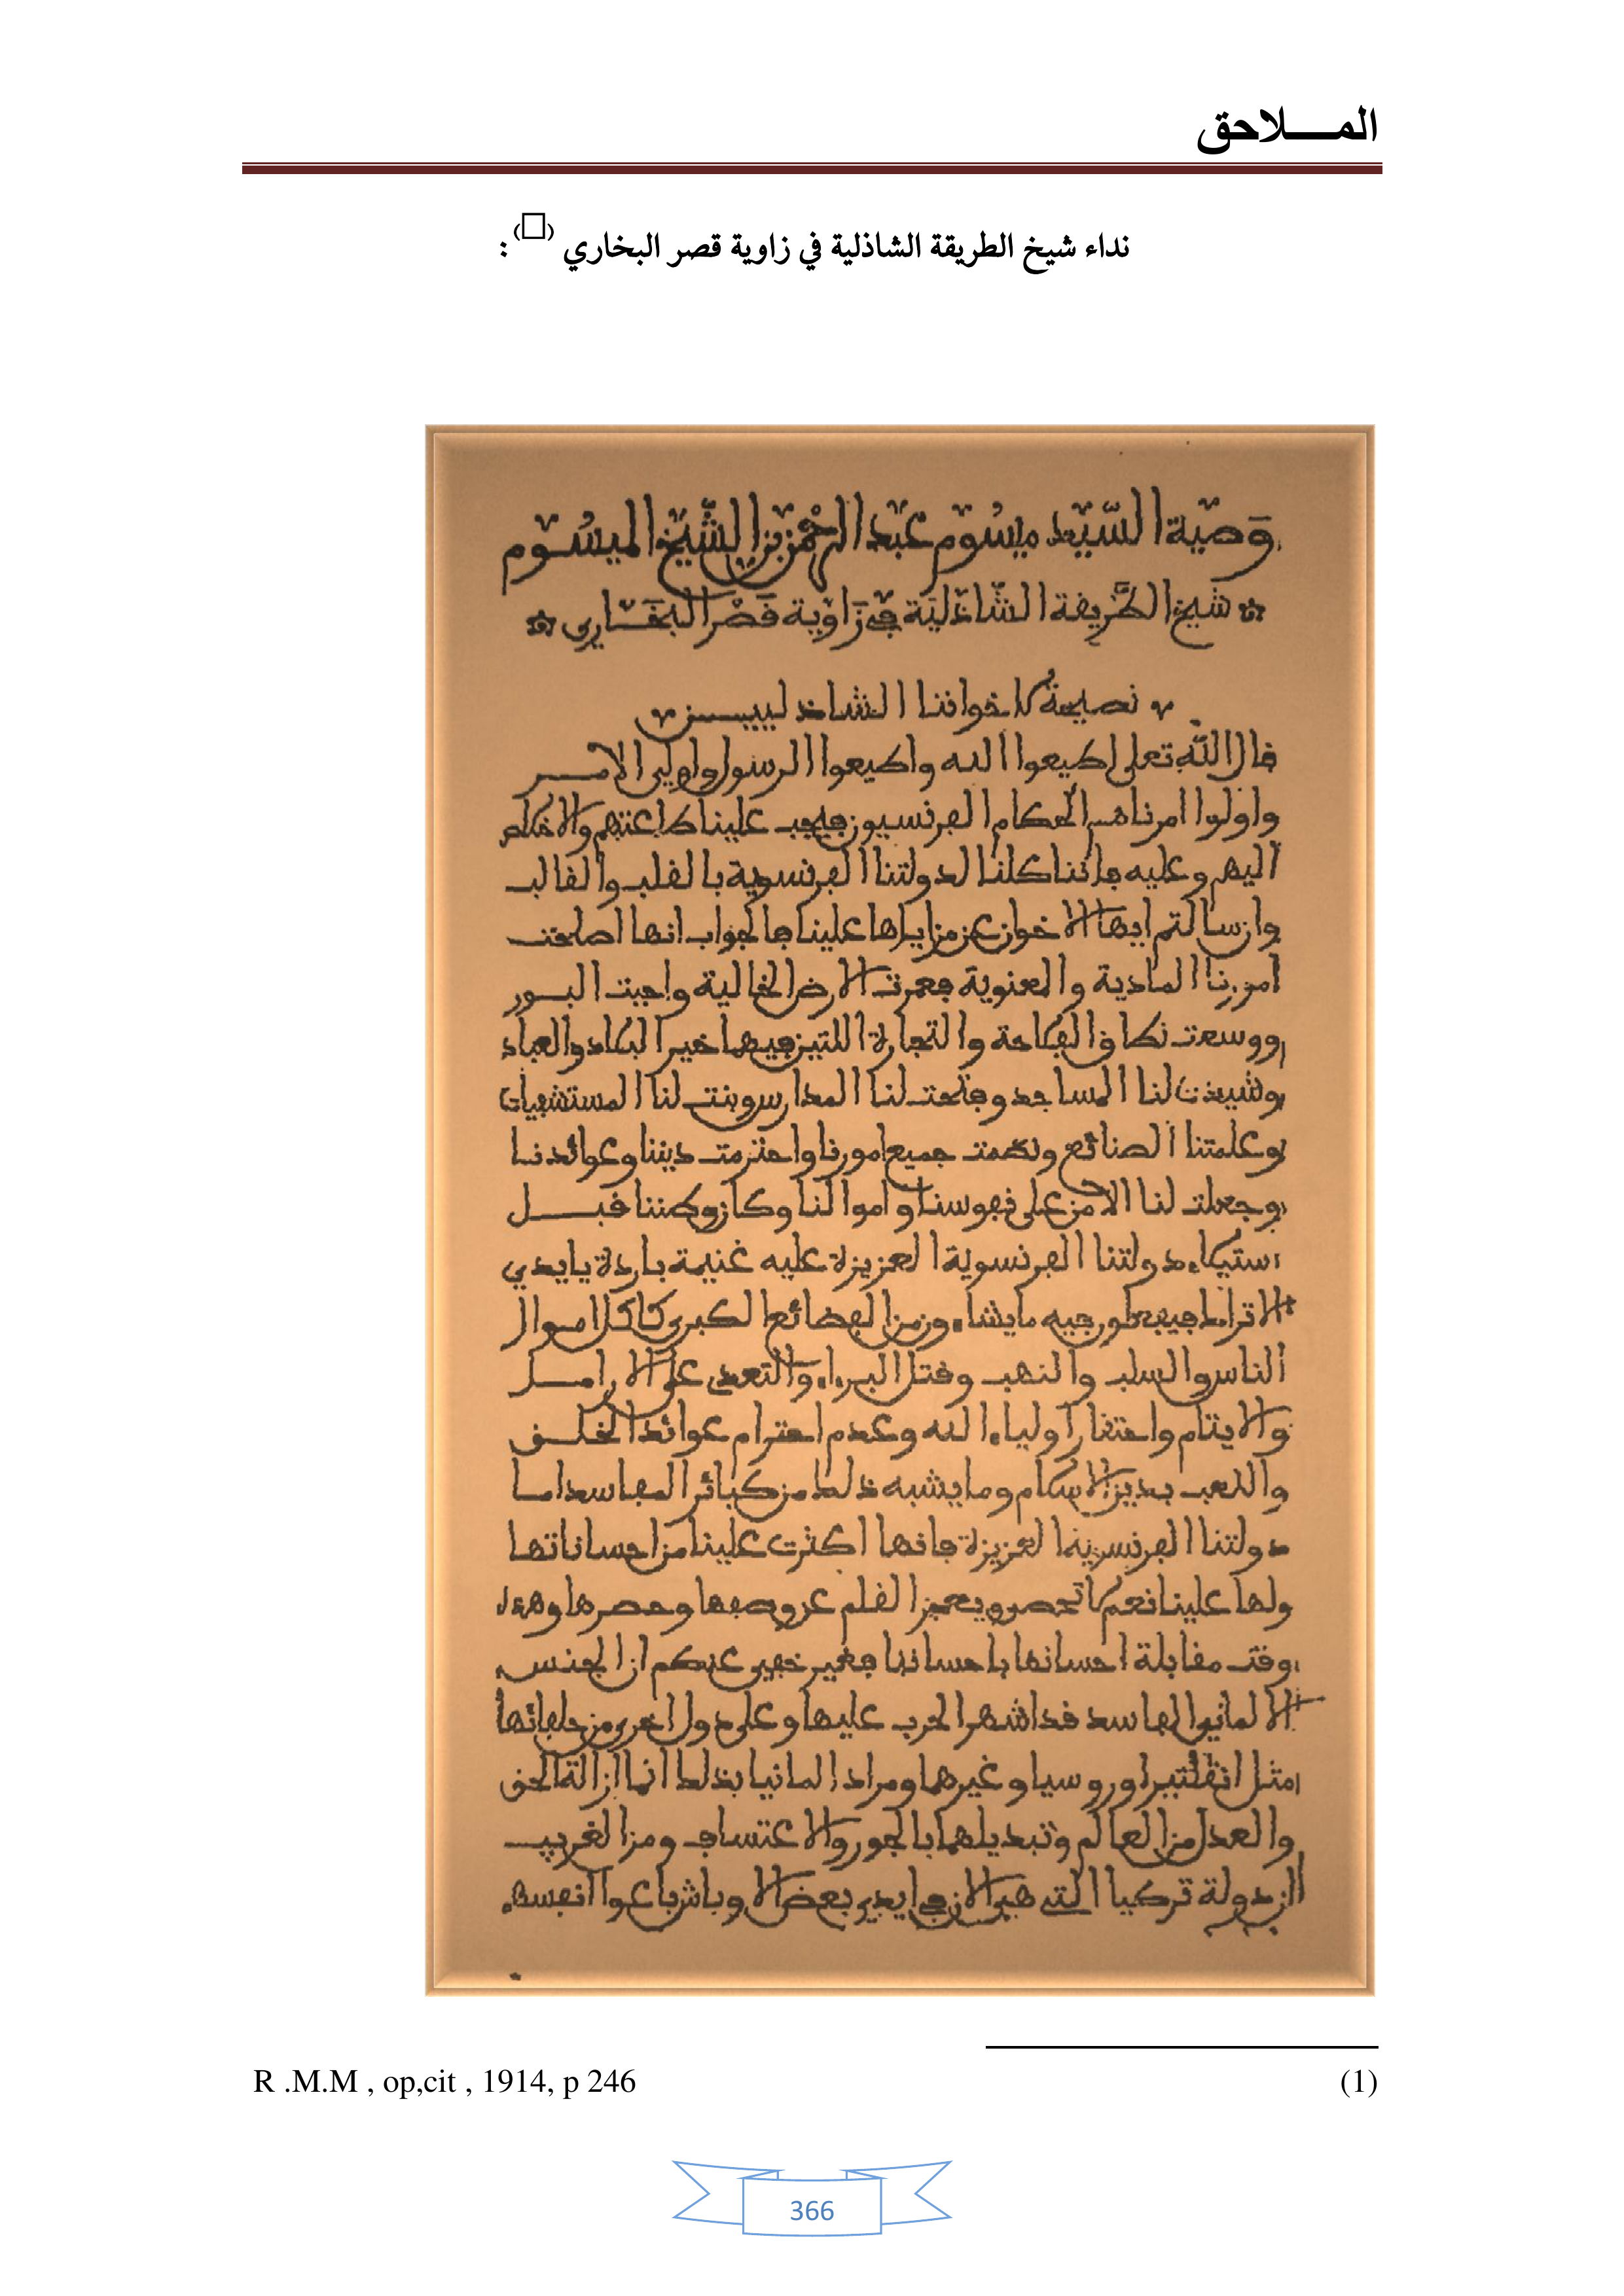 المـــــلاحق
نداء شيخ الطريقة الشاذلية في زاوية قصر البخاري (□) :
وَصية السّيد ميسُوم عبد الرحمن بن الشّيخ الميسُوم
شيخ الطّريفة الشّاذليّة في زاوية فصْر البخَاري
نصيحة لاخواننا الشاذليين
فال اللّه تعلى اطيعوا الله واطيعوا الرسول واولي الامر
واولوا امرنا هم الحكام الفرنسيون فيجب علينا طاعتهم والاخلاص
اليهم وعليه فاننا كلنا لدولتنا الفرنسوية بالفلب والفالب
وان سالتم ايها الاخوان عن مزاياها علينا فالجواب انها اصلحت
امورنا المادية والمعنوية فعمرت الارض الخالية واحيت البور
ووسعت نطاق الفلاحة والتجارة اللتين فيهما خير البلاد والعباد
وشيدت لنا المساجد وفتحت لنا المدارس وبنت لنا المستشفيات
وعلمتنا الصنائع ونظمت جميع امورنا واحترمت ديننا وعوائدنا
وجعلت لنا الامن على نفوسنا واموالنا وكان وطننا فبل
استيلاء دولتنا الفرنسوية العزيزة عليه غنيمة باردة بايدي
الاتراك فيه ما يشاءون من الفضائع الكبرى كاكل اموال
الناس والسلب والنهب وفتل البراء والتعدي على الارامل
والايتام واحتفار اولياء الله وعدم احترام عوائد الخلف
واللعب بدين الاسلام وما يشبه ذلك من كبائر المفاسد اما
دولتنا الفرنسوية العزيزة فانها اكثرت علينا من احساناتها
ولها علينا نعم لا تحصى ويعجز الفلم عن وصفها وحصرها وهذا
وفت مفابلة احسانها باحساننا فغير خفي عنكم ان الجنس
الالماني الفاسد فد اشهر الحرب عليها وعلى دول اخرى من حلفائها
مثل انڤلتيرا وروسيا وغيرهما ومراد المانيا بذلك انما ازالة الحق
والعدل من العالم وتبديلهما بالجور والاعتساف ومن الغريب
ان دولة تركيا التي هي الان في ايدي بعض الاوباش باعوا انفسهم
(1) R .M.M , op,cit , 1914, p 246
366